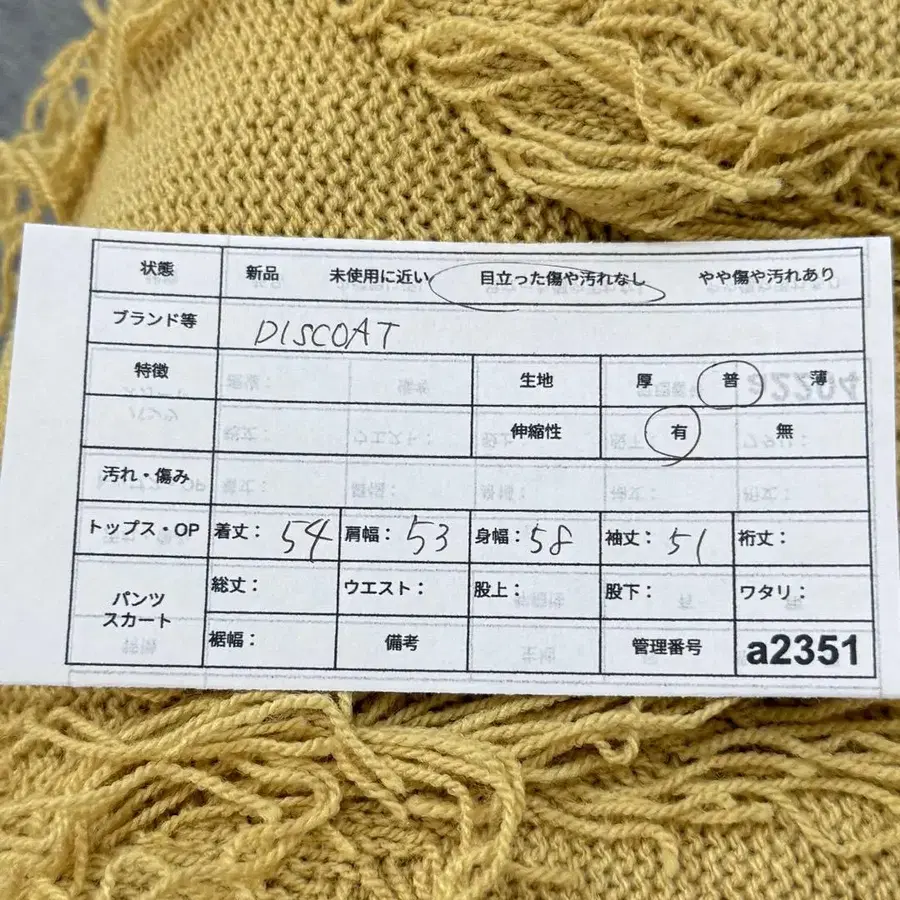 状態 新品 未使用に近い 目立った傷や汚れなし やや傷や汚れあり
ブランド等 DISCOAT
特徴 生地 厚 普 薄
伸縮性 有 無
汚れ・傷み
トップス・OP 着丈： 54 肩幅： 53 身幅： 58 袖丈： 51 裄丈：
パンツ スカート 総丈： ウエスト： 股上： 股下： ワタリ：
裾幅： 備考 管理番号 a2351